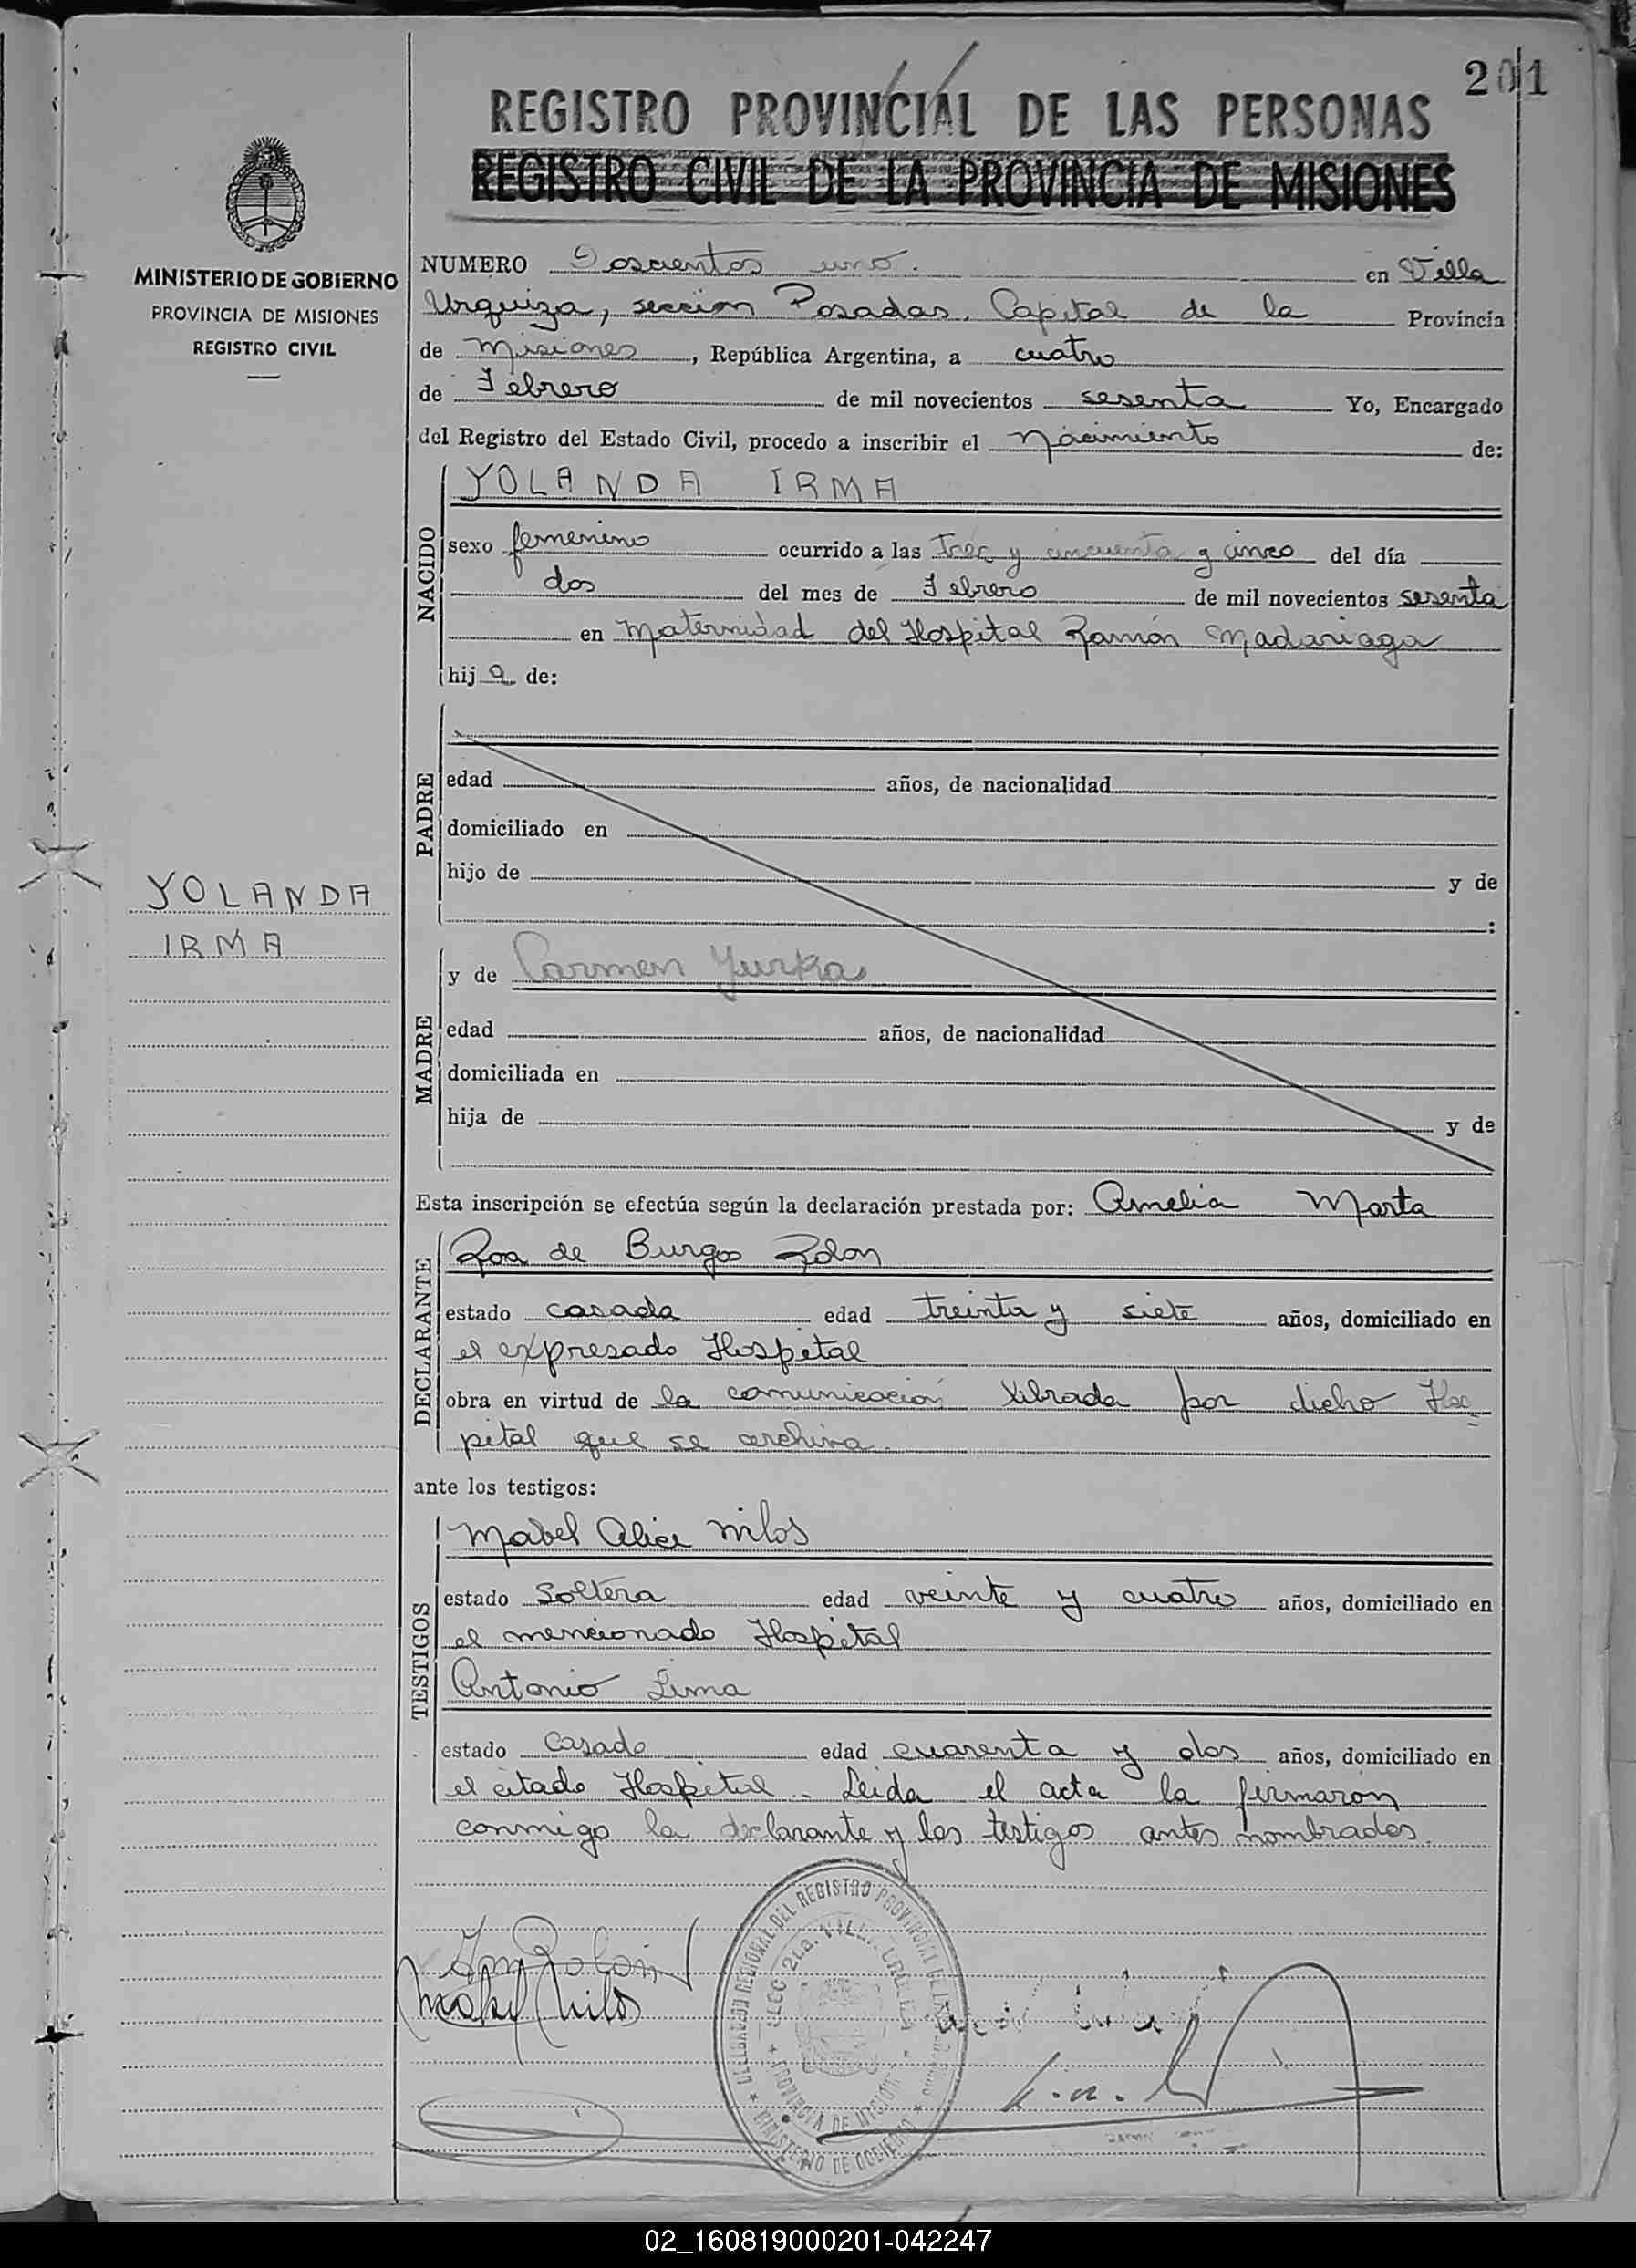 201
REGISTRO PROVINCIAL DE LAS PERSONAS
REGISTRO CIVIL DE LA PROVINCIA DE MISIONES
MINISTERIO DE GOBIERNO
PROVINCIA DE MISIONES
REGISTRO CIVIL
NUMERO Doscientos uno. en Villa
Urquiza, sección Posadas, Capital de la Provincia
de Misiones, República Argentina, a cuatro
de Febrero de mil novecientos sesenta Yo, Encargado
del Registro del Estado Civil, procedo a inscribir el Nacimiento de:
NACIDO
YOLANDA IRMA
sexo femenino ocurrido a las Tres y cincuenta y cinco del día
dos del mes de Febrero de mil novecientos sesenta
en Maternidad del Hospital Ramón Madariaga
hija de:
PADRE
edad años, de nacionalidad
domiciliado en
hijo de y de
:
YOLANDA
IRMA
MADRE
y de Carmen Yurka
edad años, de nacionalidad
domiciliada en
hija de y de
Esta inscripción se efectúa según la declaración prestada por: Amelia Marta
DECLARANTE
Roa de Burgos Rolon
estado casada edad treinta y siete años, domiciliado en
el expresado Hospital
obra en virtud de la comunicación librada por dicho Hos=
pital que se archiva.
ante los testigos:
TESTIGOS
Mabel Alice Milos
estado Soltera edad veinte y cuatro años, domiciliado en
el mencionado Hospital
Antonio Lima
estado Casado edad cuarenta y dos años, domiciliado en
el citado Hospital. Leida el acta la firmaron
conmigo la declarante y los testigos antes nombrados.
DELEGACION REGIONAL DEL REGISTRO PROVINCIAL DE LAS PERSONAS
SECC. 2La. VILLA URQUIZA
PROVINCIA DE MISIONES
MINISTERIO DE GOBIERNO
Mabel Milos
02_160819000201-042247